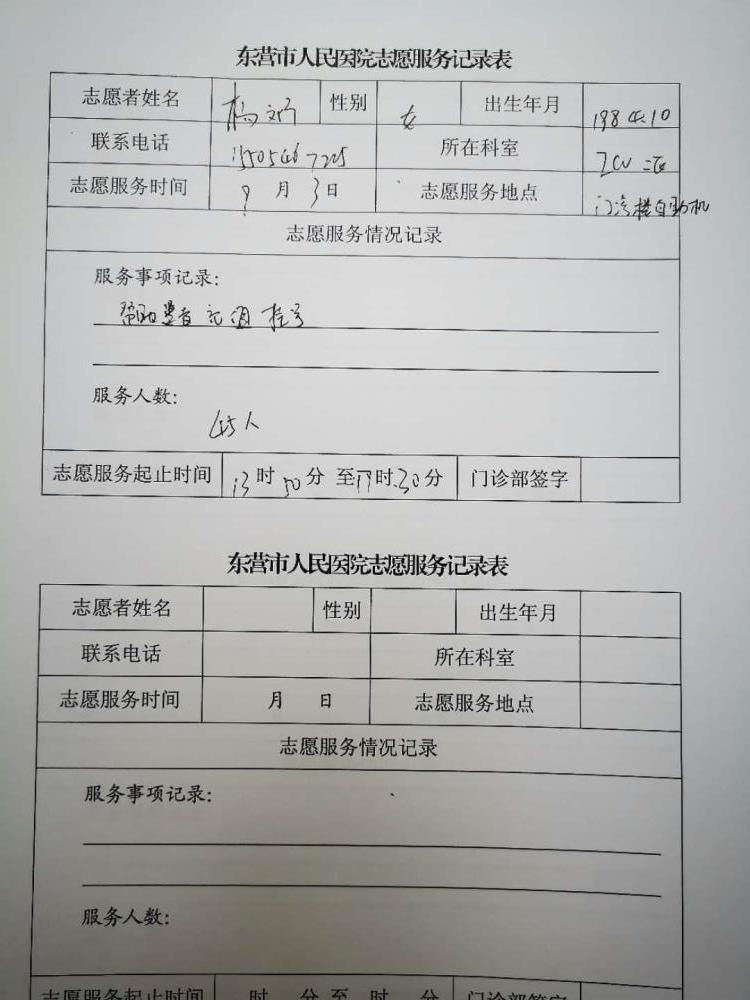 东营市人民医院志愿服务记录表
志愿者姓名 杨 性别 女 出生年月 1984.10
联系电话 所在科室 ICU
志愿服务时间 9月3日 志愿服务地点 门诊楼自助机
志愿服务情况记录
服务事项记录:
帮助患者充值 挂号
服务人数:
45人
志愿服务起止时间 13时50分至17时30分 门诊部签字
东营市人民医院志愿服务记录表
志愿者姓名 性别 出生年月
联系电话 所在科室
志愿服务时间 月 日 志愿服务地点
志愿服务情况记录
服务事项记录:
服务人数:
志愿服务起止时间 时 分至 时 分 门诊部签字